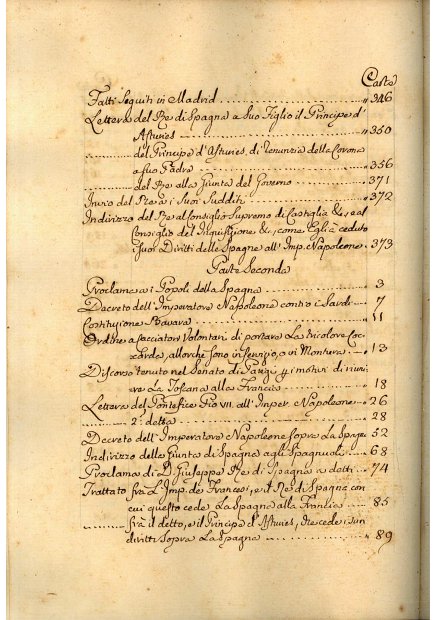 Carte
Fatti Seguiti in Madrid ........................ " 346
Lettera del Re di Spagna a Suo Figlio il Principe d'
Asturies ........................ " 350
......... del Principe d'Asturies, di renunzia della Corona
a suo Padre ........................ " 356
......... del Re alla Giunta del Governo ............ " 371
del Re a i Suoi Sudditi ........................ " 372
Indirizzo del Re al Consiglio Supremo di Castiglia &, e al
Consiglio del Inquisizione &, come Egli à ceduto
i suoi Diritti delle Spagne all' Imp. Napoleone . 373
Parte Seconda
Proclama a i Popoli della Spagna ............ " 3
Decreto dell' Imperatore Napoleone contro i Sardi " 7
Costituzione Bavara ........................ " 11
Ordine a Cacciatori Volontari di portare La tricolore Coc=
carda, allorchè sono in servizio, o in Montura . " 13
Discorso tenuto nel Senato di Parigi e i motivi di riuni
re La Toscana alla Francia ............ " 18
Lettera del Pontefice Pio VII. all' Imper. Napoleone . " 26
......... 2.a detta ........................ " 28
Decreto dell' Imperatore Napoleone sopra La Spag.a 52
Indirizzo della Giunta di Spagna agli Spagnuoli . " 68
Proclama di D. Giuseppe Re di Spagna a detti . " 74
Trattato frà L' Imp. de Francesi, e il Re di Spagna con
cui questo cede La Spagna alla Francia ...... " 85
......... frà il detto, e il Principe d'Asturies, che cede i suoi
diritti sopra La Spagna ............ " 89